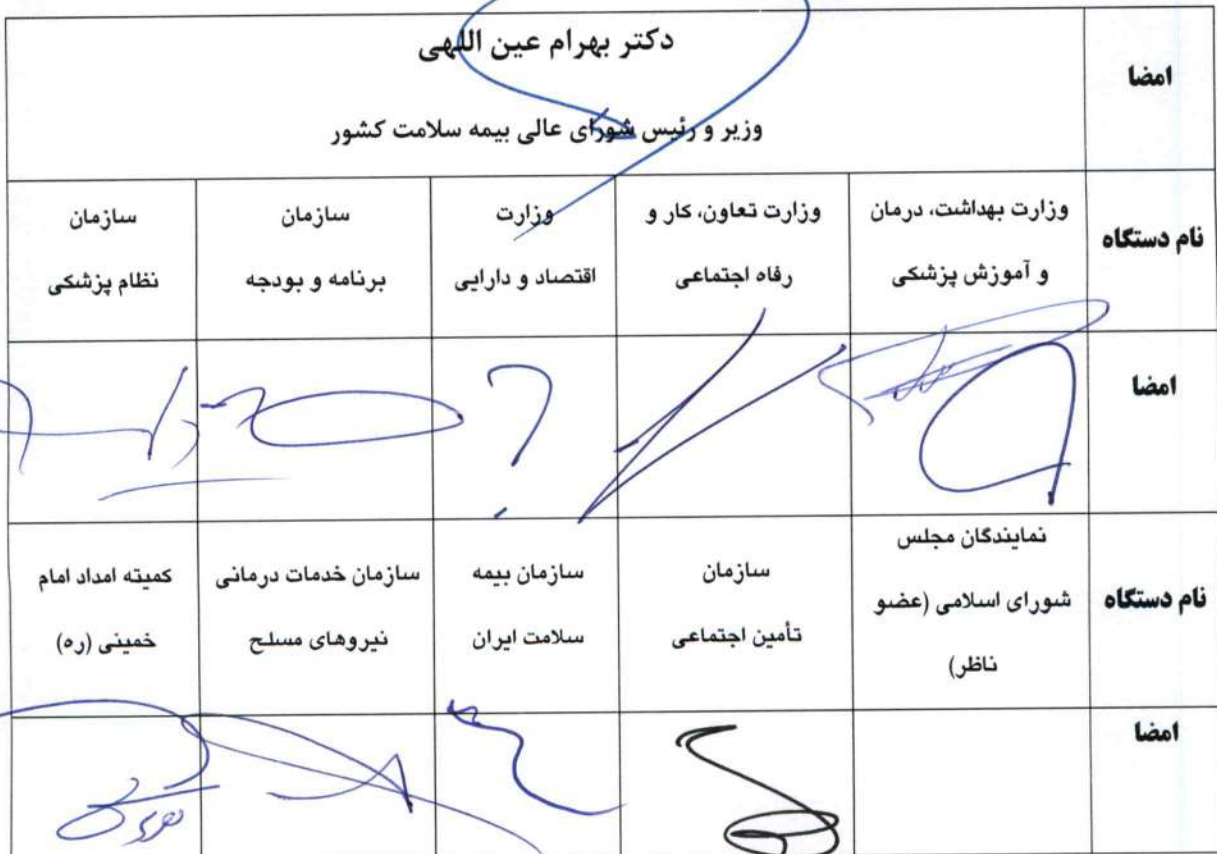 امضا
دکتر بهرام عین اللهی
وزیر و رئیس شورای عالی بیمه سلامت کشور
نام دستگاه
وزارت بهداشت، درمان
و آموزش پزشکی
وزارت تعاون، کار و
رفاه اجتماعی
وزارت
اقتصاد و دارایی
سازمان
برنامه و بودجه
سازمان
نظام پزشکی
امضا
نام دستگاه
نمایندگان مجلس
شورای اسلامی (عضو
ناظر)
سازمان
تأمین اجتماعی
سازمان بیمه
سلامت ایران
سازمان خدمات درمانی
نیروهای مسلح
کمیته امداد امام
خمینی (ره)
امضا